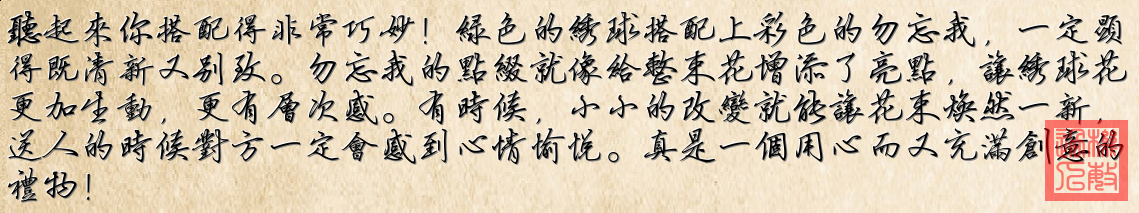 聽起來你搭配得非常巧妙！綠色的綉球搭配上彩色的勿忘我，一定顯
得既清新又別致。勿忘我的點綴就像給整束花增添了亮點，讓綉球花
更加生動，更有層次感。有時候，小小的改變就能讓花束煥然一新，
送人的時候對方一定會感到心情愉悅。真是一個用心而又充滿創意的
禮物！